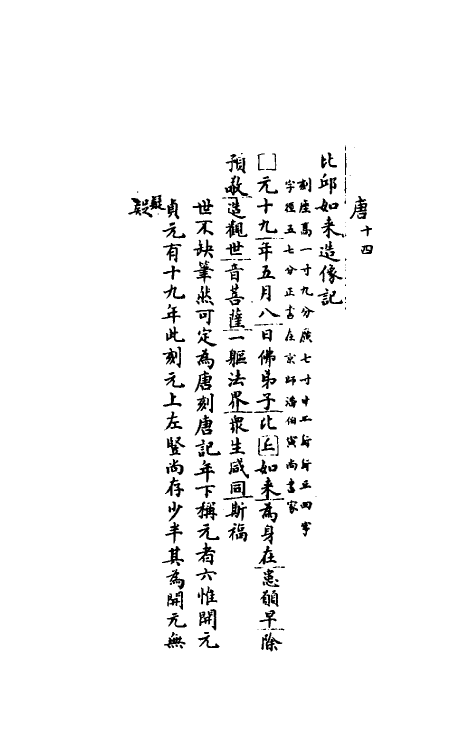 唐十四
比邱如来造像記
刻座高一寸九分廣七寸十二行行五四字
字徑五七分正書在京師潘伯寅尚書家
□元十九年五月八日佛弟子比丘如来為身在患願早除
預敬造觀世音菩薩一軀法界衆生咸同斯福
世不缺筆然可定為唐刻唐記年下稱元者六惟開元
貞元有十九年此刻元上左豎尚存少半其為開元無
疑